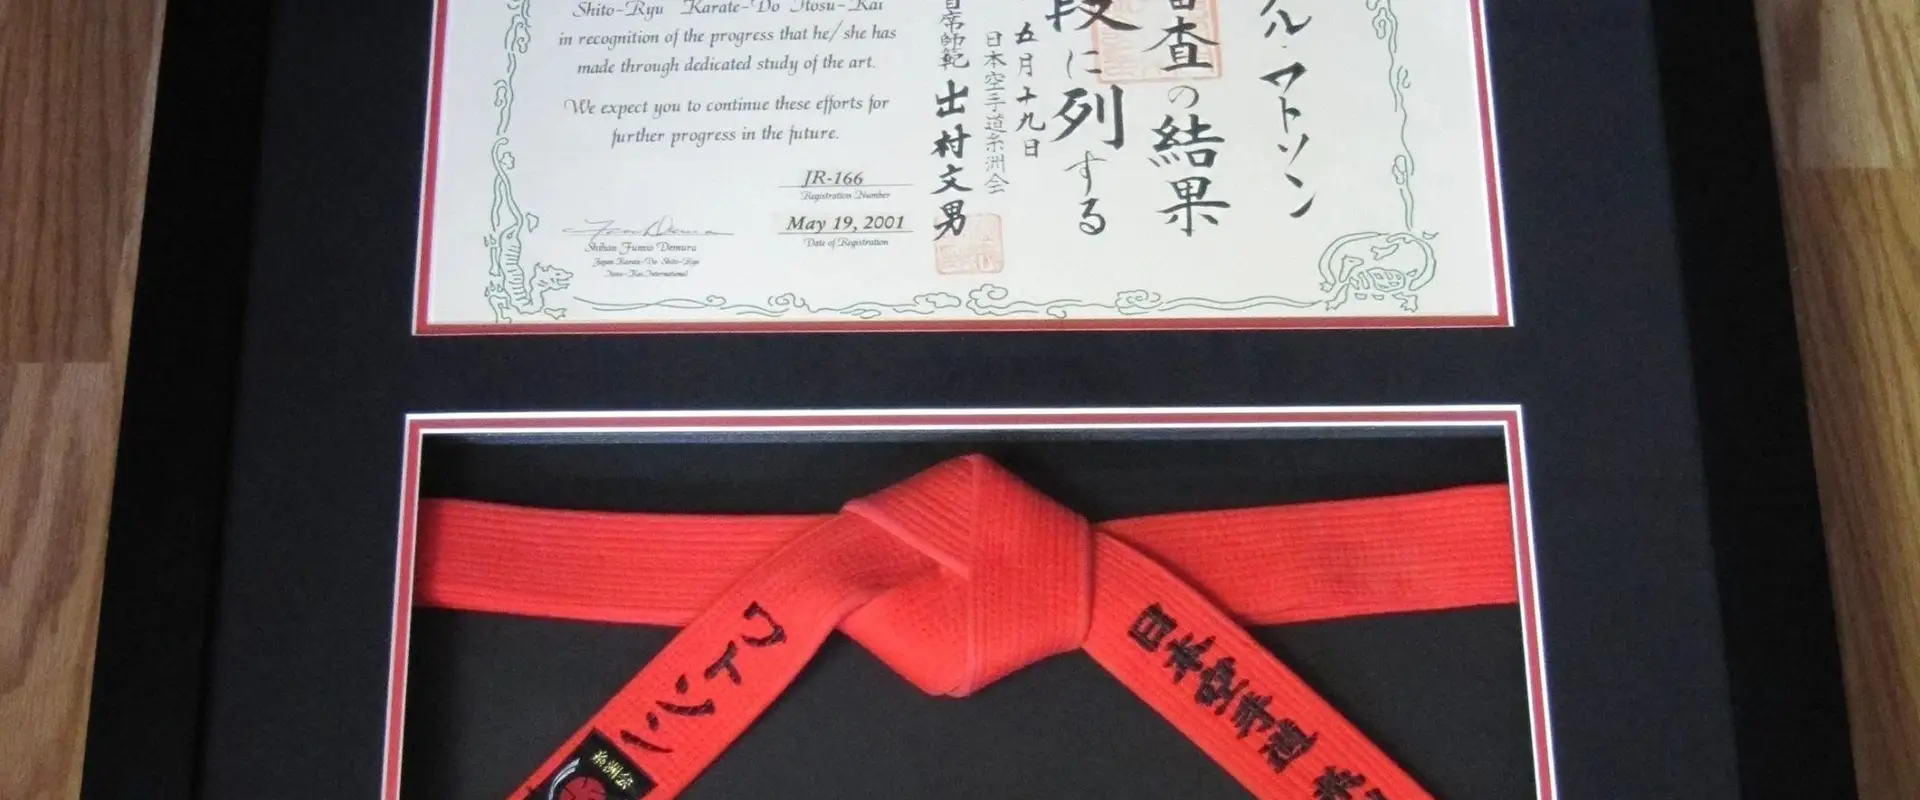 Shito-Ryu Karate-Do Itosu-Kai
in recognition of the progress that he/she has
made through dedicated study of the art.
We expect you to continue these efforts for
further progress in the future.
JR-166
Registration Number
May 19, 2001
Date of Registration
Shihan Fumio Demura
Japan Karate-Do Shito-Ryu
Itosu-Kai International
ル・マトソン
審査の結果
段に列する
五月十九日
日本空手道糸洲会
首席師範 出村文男
ウィンン
糸洲会
日本空手道 糸